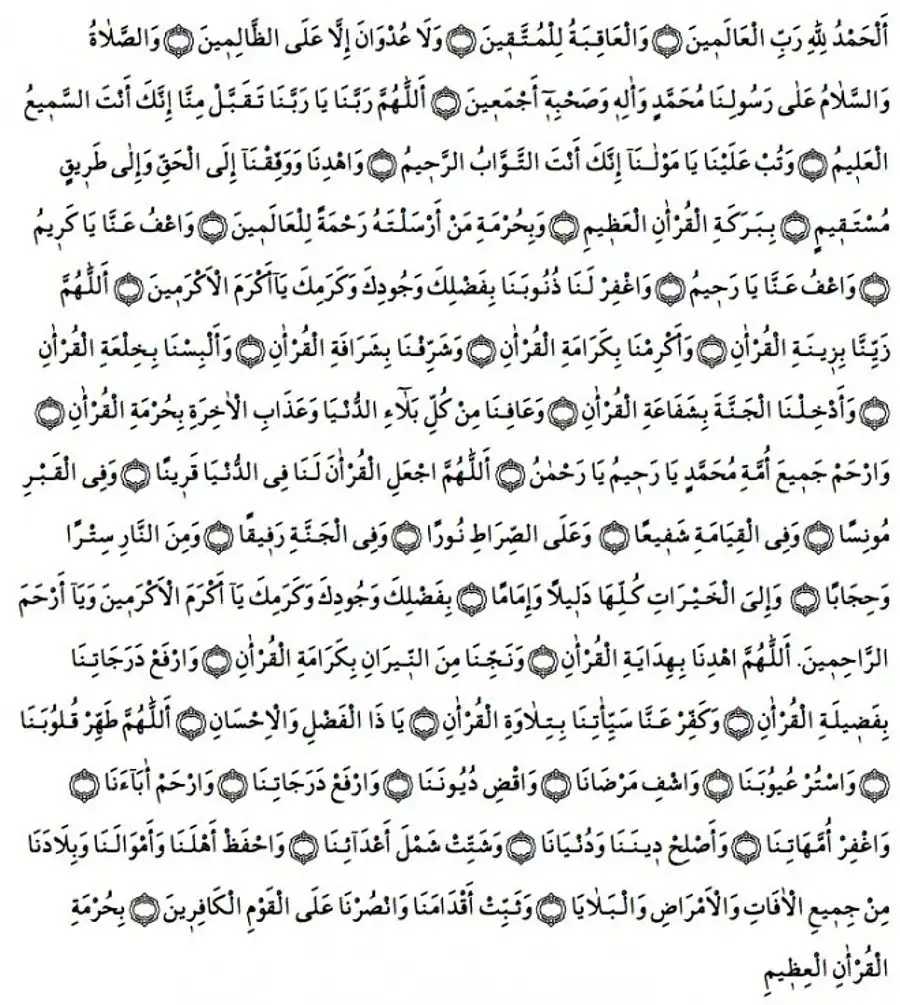 أَلْحَمْدُ لِلّٰهِ رَبِّ الْعَالَمِينَ ۝ وَالْعَاقِبَةُ لِلْمُتَّقِينَ ۝ وَلَا عُدْوَانَ إِلَّا عَلَى الظَّالِمِينَ ۝ وَالصَّلَاةُ
وَالسَّلَامُ عَلٰى رَسُولِنَا مُحَمَّدٍ وَاٰلِهِ وَصَحْبِهِٓ أَجْمَعِينَ ۝ أَللّٰهُمَّ رَبَّنَا يَا رَبَّنَا تَقَبَّلْ مِنَّا إِنَّكَ أَنْتَ السَّمِيعُ
الْعَلِيمُ ۝ وَتُبْ عَلَيْنَا يَا مَوْلٰنَٓا إِنَّكَ أَنْتَ التَّوَّابُ الرَّحِيمُ ۝ وَاهْدِنَا وَوَفِّقْنَٓا إِلَى الْحَقِّ وَإِلٰى طَرِيقٍ
مُسْتَقِيمٍ ۝ بِبَرَكَةِ الْقُرْاٰنِ الْعَظِيمِ ۝ وَبِحُرْمَةِ مَنْ أَرْسَلْتَهُ رَحْمَةً لِلْعَالَمِينَ ۝ وَاعْفُ عَنَّا يَا كَرِيمُ
۝ وَاعْفُ عَنَّا يَا رَحِيمُ ۝ وَاغْفِرْ لَنَا ذُنُوبَنَا بِفَضْلِكَ وَجُودِكَ وَكَرَمِكَ يَٓا أَكْرَمَ الْاَكْرَمِينَ ۝ أَللّٰهُمَّ
زَيِّنَّا بِزِينَةِ الْقُرْاٰنِ ۝ وَأَكْرِمْنَا بِكَرَامَةِ الْقُرْاٰنِ ۝ وَشَرِّفْنَا بِشَرَافَةِ الْقُرْاٰنِ ۝ وَأَلْبِسْنَا بِخِلْعَةِ الْقُرْاٰنِ
۝ وَأَدْخِلْنَا الْجَنَّةَ بِشَفَاعَةِ الْقُرْاٰنِ ۝ وَعَافِنَا مِنْ كُلِّ بَلَٓاءِ الدُّنْيَا وَعَذَابِ الْاٰخِرَةِ بِحُرْمَةِ الْقُرْاٰنِ ۝
وَارْحَمْ جَمِيعَ أُمَّةِ مُحَمَّدٍ يَا رَحِيمُ يَا رَحْمٰنُ ۝ أَللّٰهُمَّ اجْعَلِ الْقُرْاٰنَ لَنَا فِى الدُّنْيَا قَرِينًا ۝ وَفِى الْقَبْرِ
مُونِسًا ۝ وَفِى الْقِيَامَةِ شَفِيعًا ۝ وَعَلَى الصِّرَاطِ نُورًا ۝ وَفِى الْجَنَّةِ رَفِيقًا ۝ وَمِنَ النَّارِ سِتْرًا
وَحِجَابًا ۝ وَإِلَى الْخَيْرَاتِ كُلِّهَا دَلِيلاً وَإِمَامًا ۝ بِفَضْلِكَ وَجُودِكَ وَكَرَمِكَ يَٓا أَكْرَمَ الْاَكْرَمِينَ وَيَٓا أَرْحَمَ
الرَّاحِمِينَ. أَللّٰهُمَّ اهْدِنَا بِهِدَايَةِ الْقُرْاٰنِ ۝ وَنَجِّنَا مِنَ النِّيرَانِ بِكَرَامَةِ الْقُرْاٰنِ ۝ وَارْفَعْ دَرَجَاتِنَا
بِفَضِيلَةِ الْقُرْاٰنِ ۝ وَكَفِّرْ عَنَّا سَيِّاٰتِنَا بِتِلَاوَةِ الْقُرْاٰنِ ۝ يَا ذَا الْفَضْلِ وَالْاِحْسَانِ ۝ أَللّٰهُمَّ طَهِّرْ قُلُوبَنَا
۝ وَاسْتُرْ عُيُوبَنَا ۝ وَاشْفِ مَرْضَانَا ۝ وَاقْضِ دُيُونَنَا ۝ وَارْفَعْ دَرَجَاتِنَا ۝ وَارْحَمْ اٰبَاءَنَا ۝
وَاغْفِرْ أُمَّهَاتِنَا ۝ وَأَصْلِحْ دِينَنَا وَدُنْيَانَا ۝ وَشَتِّتْ شَمْلَ أَعْدَٓائِنَا ۝ وَاحْفَظْ أَهْلَنَا وَأَمْوَالَنَا وَبِلَادَنَا
مِنْ جَمِيعِ الْاٰفَاتِ وَالْاَمْرَاضِ وَالْبَلَايَا ۝ وَثَبِّتْ أَقْدَامَنَا وَانْصُرْنَا عَلَى الْقَوْمِ الْكَافِرِينَ ۝ بِحُرْمَةِ
الْقُرْاٰنِ الْعِظِيمِ